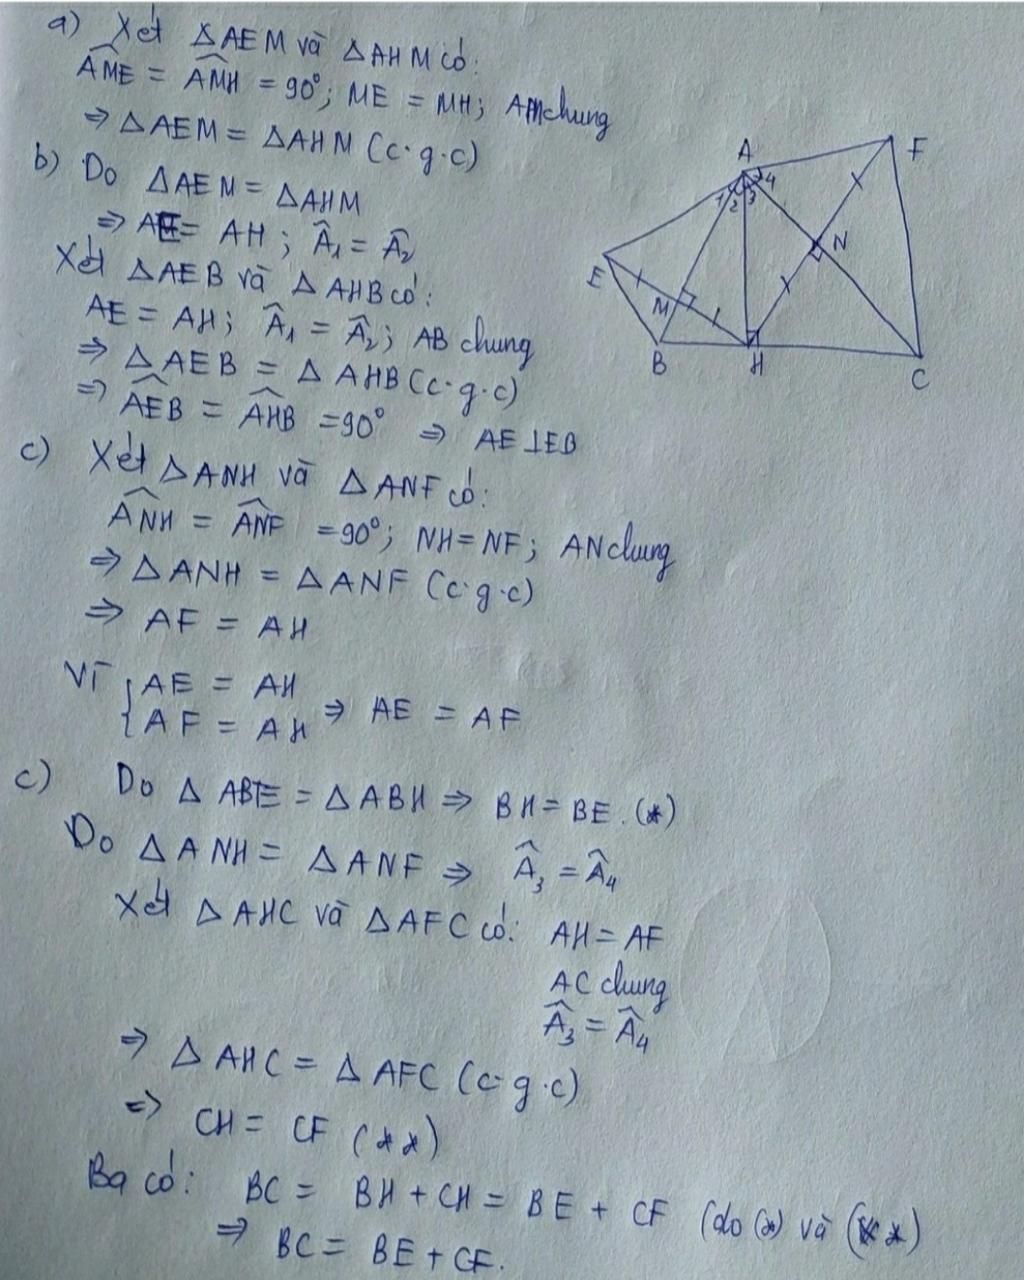 a) Xét ΔAEM và ΔAHM có:
$\widehat{AME}$ = $\widehat{AMH}$ = 90°; ME = MH; AM chung
⇒ ΔAEM = ΔAHM (c.g.c)
b) Do ΔAEM = ΔAHM
⇒ AE = AH; $\widehat{A}_1$ = $\widehat{A}_2$
Xét ΔAEB và ΔAHB có:
AE = AH; $\widehat{A}_1$ = $\widehat{A}_2$; AB chung
⇒ ΔAEB = ΔAHB (c.g.c)
⇒ $\widehat{AEB}$ = $\widehat{AHB}$ = 90° ⇒ AE ⊥ EB
c) Xét ΔANH và ΔANF có:
$\widehat{ANH}$ = $\widehat{ANF}$ = 90°; NH = NF; AN chung
⇒ ΔANH = ΔANF (c.g.c)
⇒ AF = AH
Vì { AE = AH
AF = AH ⇒ AE = AF
c) Do Δ ABE = ΔABH ⇒ BH = BE. (*)
Do ΔANH = ΔANF ⇒ $\widehat{A}_3$ = $\widehat{A}_4$
Xét ΔAHC và ΔAFC có: AH = AF
AC chung
$\widehat{A}_3$ = $\widehat{A}_4$
⇒ ΔAHC = ΔAFC (c.g.c)
⇒ CH = CF (**)
Ba có: BC = BH + CH = BE + CF (do (*) và (**)
⇒ BC = BE + CF.
A
F
1
2
3
4
E
M
N
B
H
C